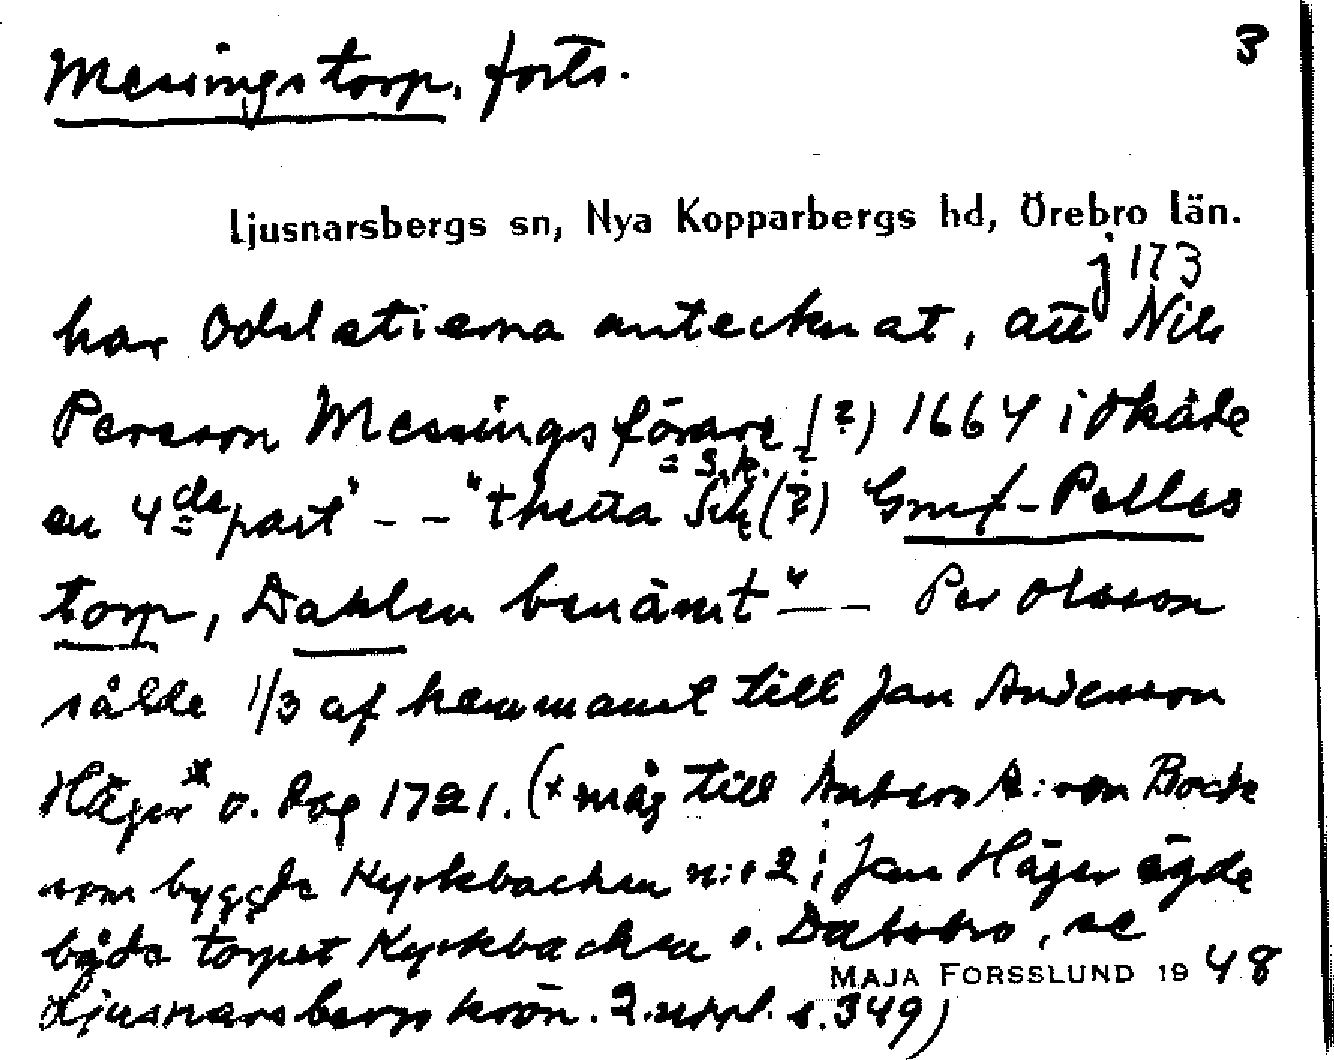 3
Messingstorp, forts.
Ljusnarsbergs sn, Nya Kopparbergs hd, Örebro län.
j 173
har Odelstierna antecknat, att Nils
Persson Messingsförare (?) 1664 i Okåde
= s.k.
en 4de part" - - "thetta (?) Gruf-Pelles
torp, Dahlen benämt" - - Per Olsson
sålde 1/3 af hemmanet till Jan Andersson
Häger* o. dog 1721. (* måg till Anders A:son Bock
som byggde Kyrkbacken n:o 2; Jan Häger ägde
både torpet Kyrkbacken o. Dalsbro, se
MAJA FORSSLUND 1948
Ljusnarsbergs krön. 2. uppl. s. 349)